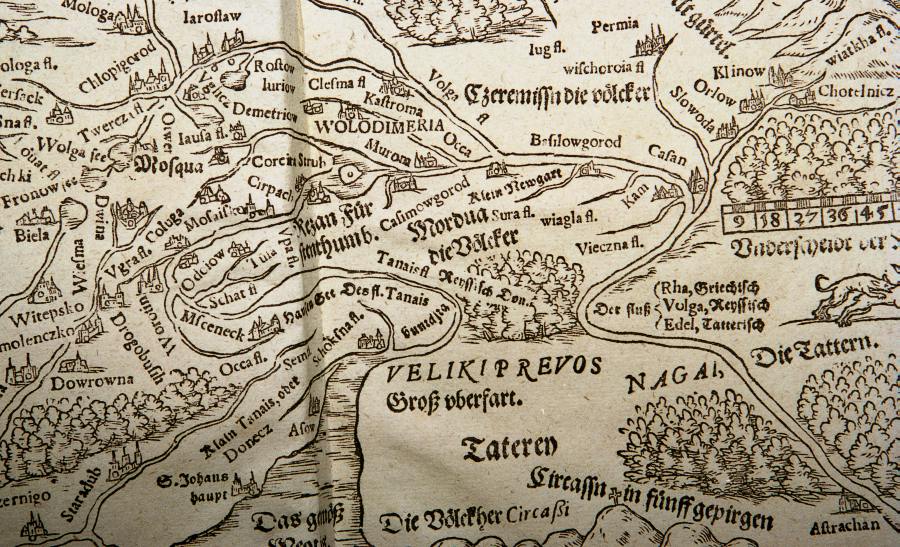 Mologa
Iaroslaw
Permia
Iug fl.
wiatkha fl.
ologa fl.
Chlopigorod
Rostow
wischoroia fl
Klinow
Chotelnicz
Iuriow
Clesma fl
Volga
Czeremissn die völcker
Orlow
Kastroma
Slowoda
Demetriow
Twerczi fl
WOLODIMERIA
fl
Wolga see
Iausa fl.
Occa
Basilowgorod
Casan
Mosqua
Murom
Corcira Strub
Fronow see
Cirpach
Casimowgorod
Klein Newgart
Kam
9 18 27 36 45
Biela
Dwina
Mosaisko
Rezan Für
stenthumb.
Mordua
die Völcker
Sura fl.
wiagla fl.
Vieczna fl.
Wiesma
Vgra fl.
Cologa
Odoiow
Tula
Tanais fl
Reyssisch Don.
Witepsko
Schat fl
Des fl. Tanais
Der fluß
Rha, Griechisch
Volga, Reyssisch
Edel, Tatterisch
Msceneck
molenczko
Vorotun
Drogobush
Occa fl.
Die Tattern.
Dowrowna
VELIKI PREVOS
NAGAI,
Groß vberfart.
Klain Tanais, oder
Donecz
Asow
Tateren
Starodub
S. Johans
haupt
Circassn in fünff gepirgen
zernigo
Das gmöß
Meotis
Die Völckher Circaßi
Astrachan